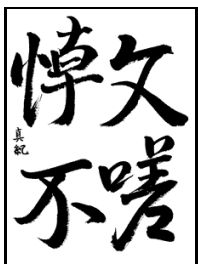 文嗟
悼不
真紀